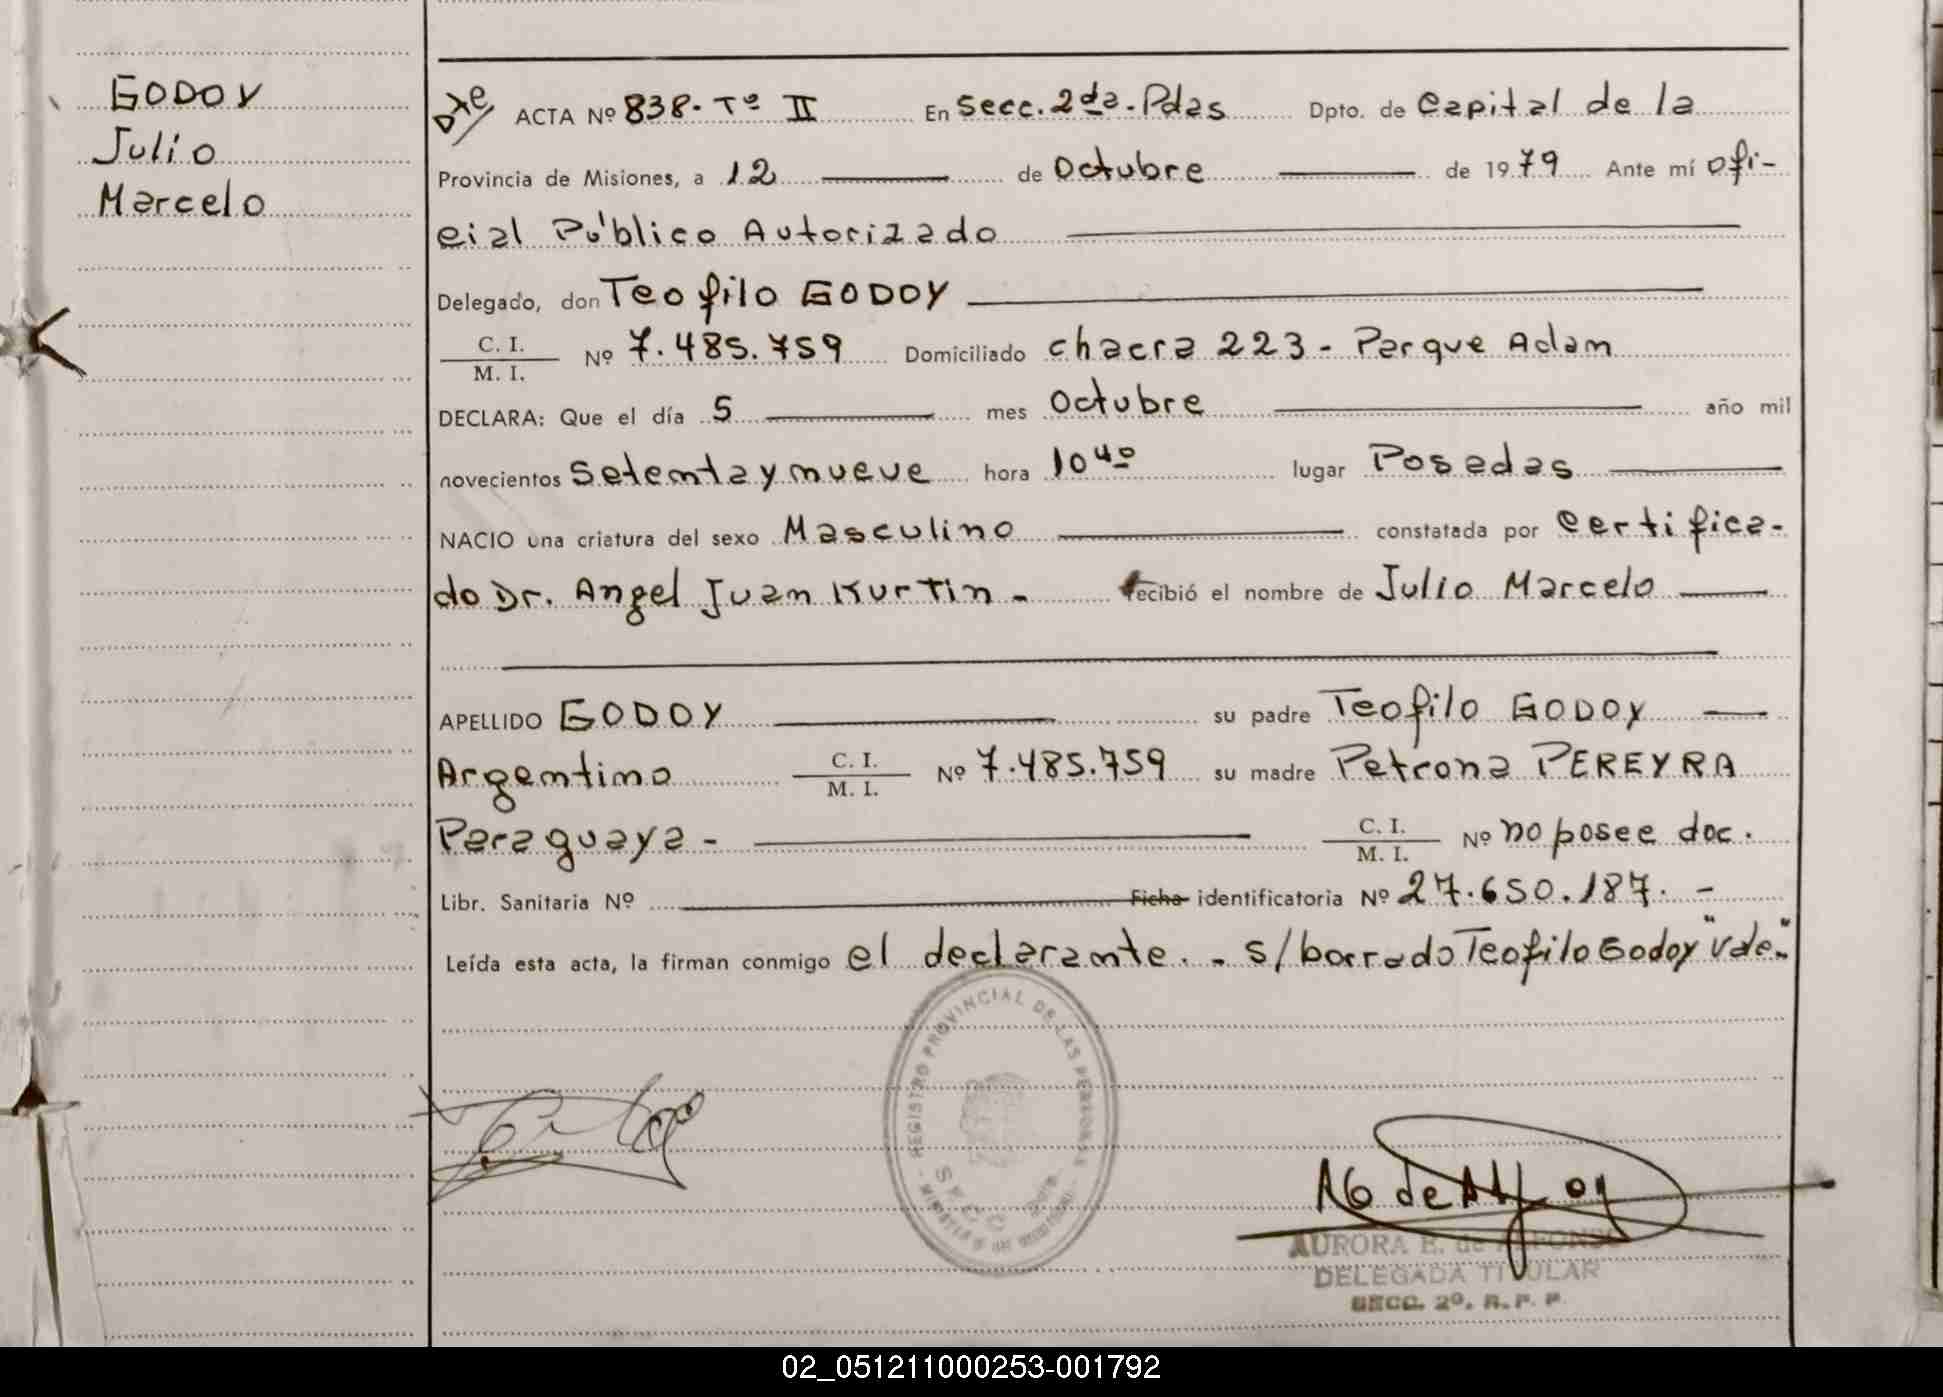 GODOY
Julio
Marcelo
Dte/ ACTA Nº 838. Tº II En Secc. 2da. Pdas Dpto. de Capital de la
Provincia de Misiones, a 12 de Octubre de 1979 Ante mí ofi-
cial Público Autorizado
Delegado, don Teofilo GODOY
C. I.
M. I.
Nº 7.485.759 Domiciliado chacra 223 - Parque Adam
DECLARA: Que el día 5 mes Octubre año mil
novecientos Setenta y nueve hora 10 40 lugar Posadas
NACIO una criatura del sexo Masculino constatada por Certifica-
do Dr. Angel Juan Kurtin - recibió el nombre de Julio Marcelo
APELLIDO GODOY su padre Teofilo GODOY
Argentino C. I.
M. I.
Nº 7.485.759 su madre Petrona PEREYRA
Paraguaya - C. I.
M. I.
Nº no posee doc.
Libr. Sanitaria Nº Ficha identificatoria Nº 27.650.187. -
Leída esta acta, la firman conmigo el declarante. - s/borrado Teofilo Godoy "Vale."
REGISTRO PROVINCIAL DE LAS PERSONAS
AURORA E. de ALFONSO
DELEGADA TITULAR
SECC. 2º. R. P. P.
02_051211000253-001792